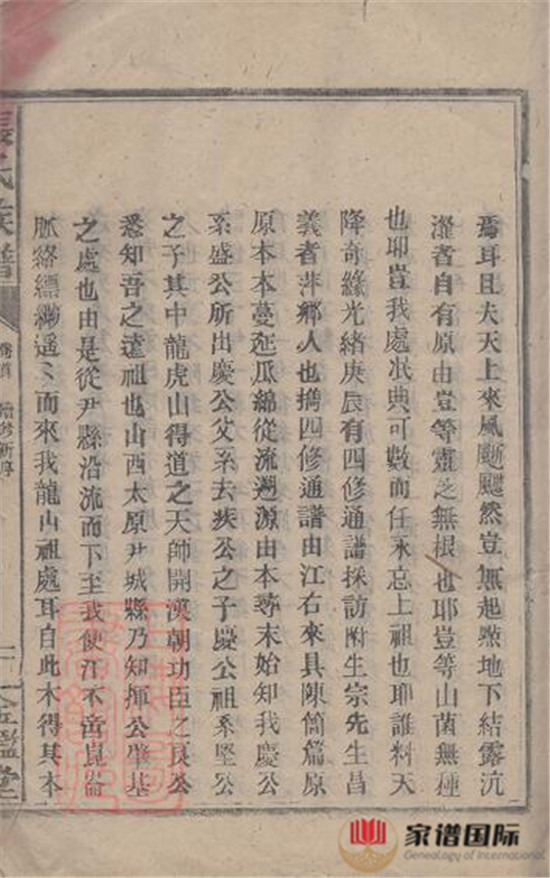 焉耳且夫天上來風颺颺然豈無起㸃地下結露沆
瀣者自有原由豈等靈芝無根也耶豈等山菌無種
也耶豈我處泯典可數而任永忘上祖也耶誰料天
降奇緣光緒庚辰有四修通譜採訪附生宗先生昌
義者萍鄉人也擕四修通譜由江右來具陳簡篇原
原本本蔓延瓜綿從流溯源由本尋末始知我慶公
系盛公所出慶公父系去疾公之子慶公祖系堅公
之子其中龍虎山得道之天師開漢朝功臣之良公
悉知吾之遠祖也山西太原尹城縣乃知揮公肇基
之處也由是從尹縣沿流而下至我便江不啻崑崙
脈絡縹緲遥〻而來我龍山祖處耳自此木得其本
張氏族譜
卷首 續修新序
一
金鑑堂
家谱国际
Genealogy of International